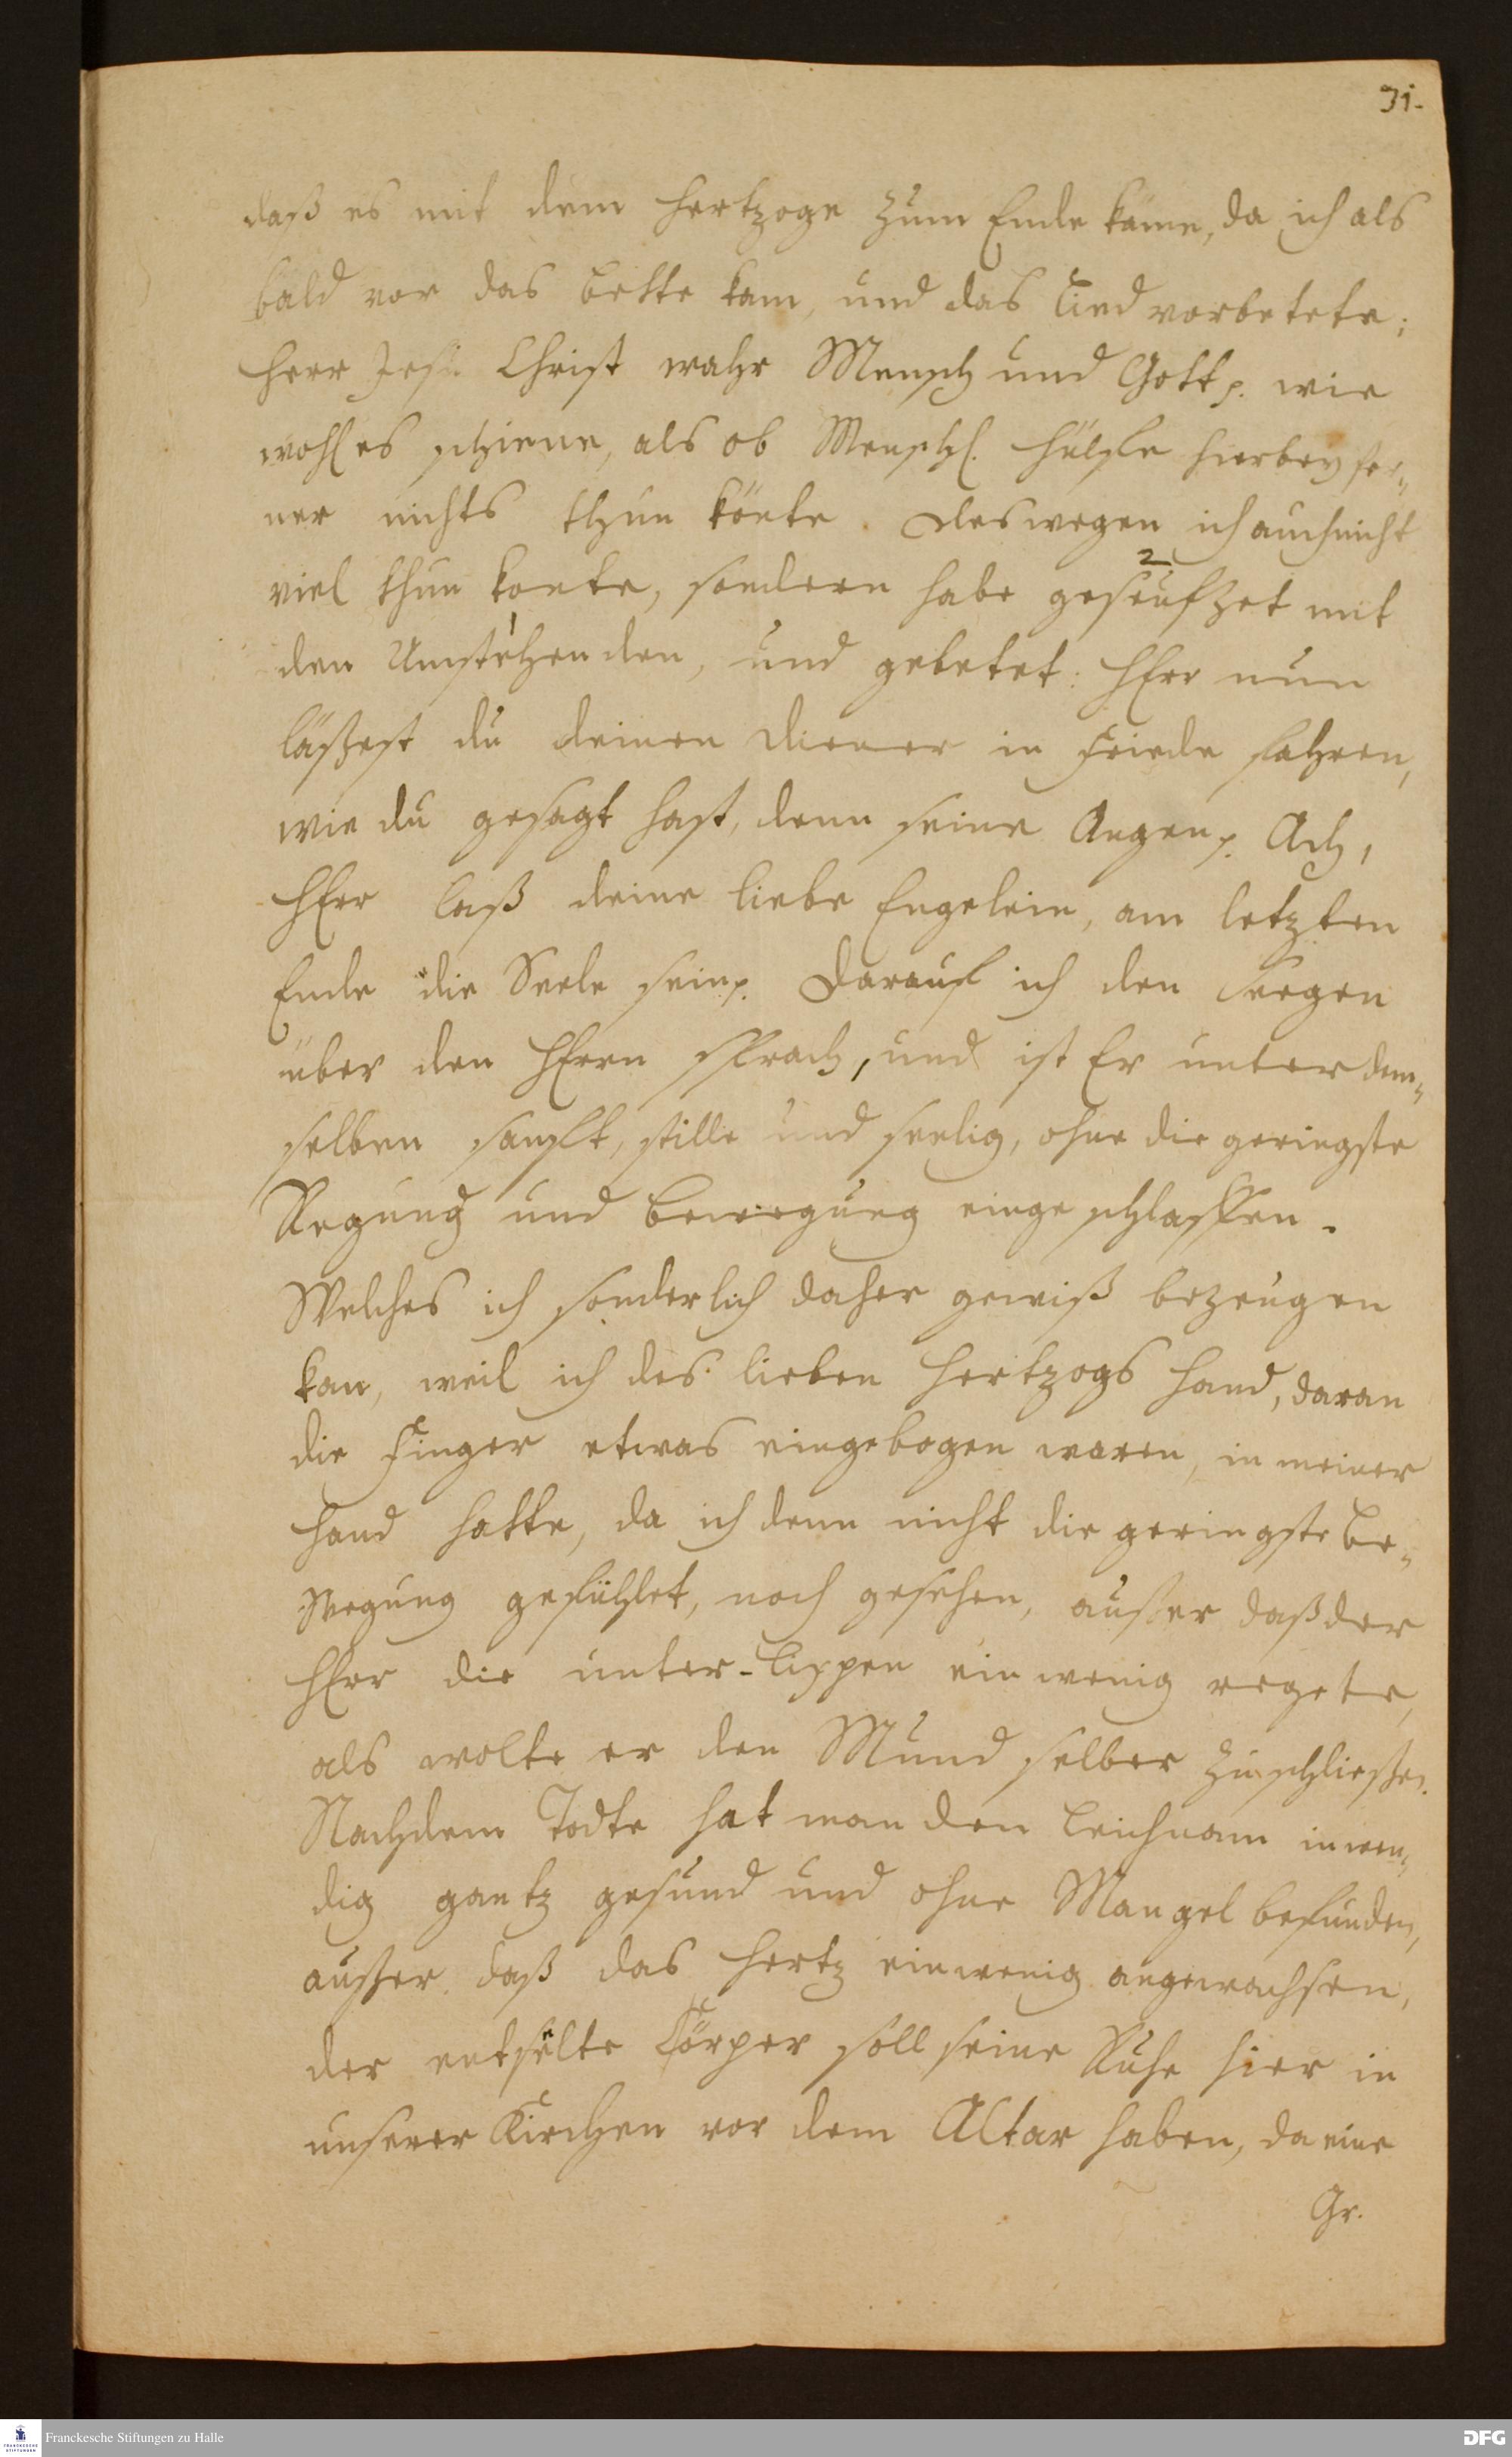 31.
daß es mit dem Hertzoge zum Ende käme, da ich als
bald vor das Bette kam, und das Lied vorbetete;
Herr Jesu Christ wahr Mensch und Gott p. wie
wohl es schiene, als ob Menschl. Hülffe hierbey fer„
ner nichts thun könte. Deswegen ich auch nicht
viel thun konte, sondern habe geseufzet mit
den Umstehenden, und gebetet: HErr nun
läßest du deinen Diener in Friede fahren,
wie du gesagt hast, denn seine Augen p. Ach,
HErr laß deine liebe Engelein, am letzten
Ende die Seele sein p. Darauf ich den Seegen
über den HErrn sprach, und ist Er unter dem„
selben sanfft, stille und seelig, ohne die geringste
Regung und Bewegung eingeschlaffen.
Welches ich sonderlich daher gewiß bezeugen
kan, weil ich des lieben Hertzogs Hand, daran
die Finger etwas eingebogen waren, in meiner
Hand hatte, da ich denn nicht die geringste Be„
wegung gefühlet, noch gesehen, außer daß der
HErr die unter-Lippen ein wenig regete,
als wolte er den Mund selber zuschließen.
Nachdem Todte hat man den Leichnam inwen„
dig gantz gesund und ohne Mangel befunden,
außer daß das Hertz ein wenig angewachsen,
der entseelte Cörper soll seine Ruhe hier in
unserer Kirchen vor dem Altar haben, da eine
Gr.
Franckesche Stiftungen zu Halle
DFG